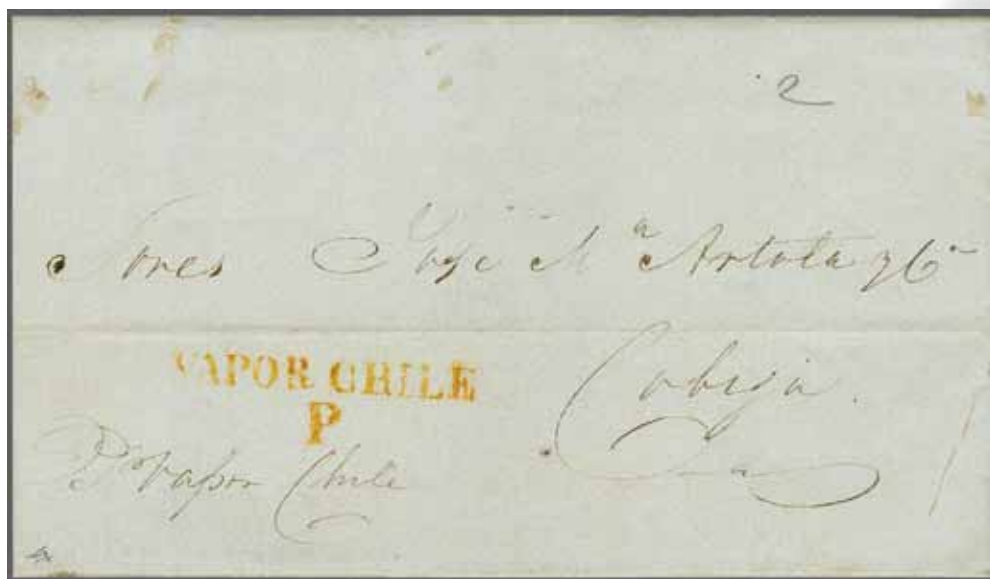 2
Sores José Ma Artola y Ca
Cobija.
VAPOR CHILE
P
Pr Vapor Chile